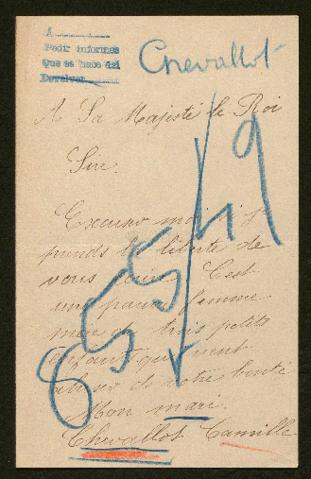 A
Pedir informes
Que se hace del
Devolver
Chevallot
A Sa Majesté le Roi
Sire.
Excusez moi si je
prends la liberté de
vous C'est
une pauvre femme
mère de trois petits
enfants qui vient
de votre bonté
Mon mari
Chevallot Camille